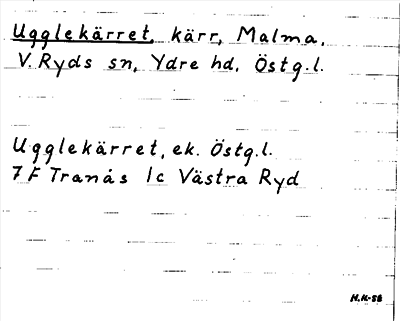 Ugglekärret, kärr, Malma,
V. Ryds sn, Ydre hd, Östg.l.
Ugglekärret, ek. Östg.l.
7F Tranås 1c Västra Ryd
H.K-58